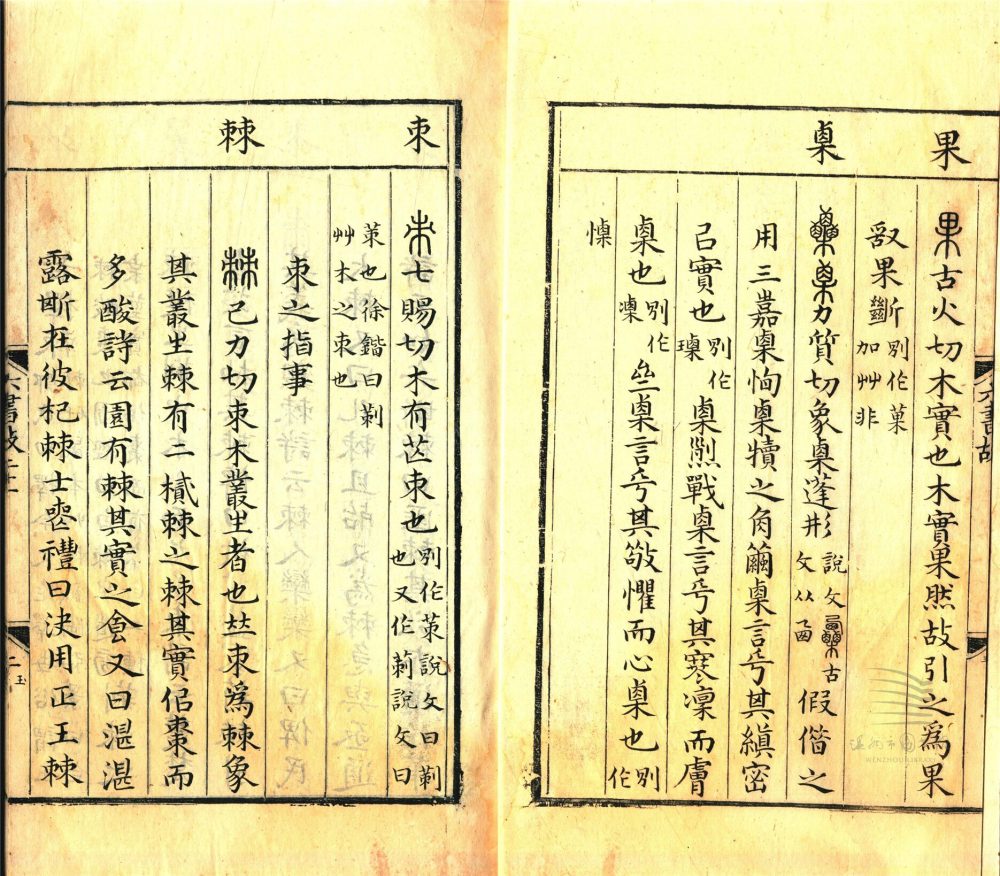 果
㮚
果古火切木實也木實果然故引之為果
敢果斷別作菓加艸非
力質切象㮚蓬形說文古文从西假借之
用三嘉㮚恂㮚犢之角繭㮚言乎其縝密
㠯實也別作瑮㮚烈戰㮚言乎其寒凜而膚
㮚也別作凓㮚言乎其敬懼而心㮚也別作
慄
朿
棘
朿七賜切木有芒朿也別作茦說文曰莿也又作莿說文曰
茦也徐鍇曰莿艸木之朿也
朿之指事
棘己力切朿木叢生者也竝朿為棘象
其叢生棘有二樲棘之棘其實佀棗而
多酸詩云園有棘其實之食又曰湛湛
露斯在彼杞棘士喪禮曰決用正王棘
六書故
六書故二十一
二五
WENZHOU LIBRARY